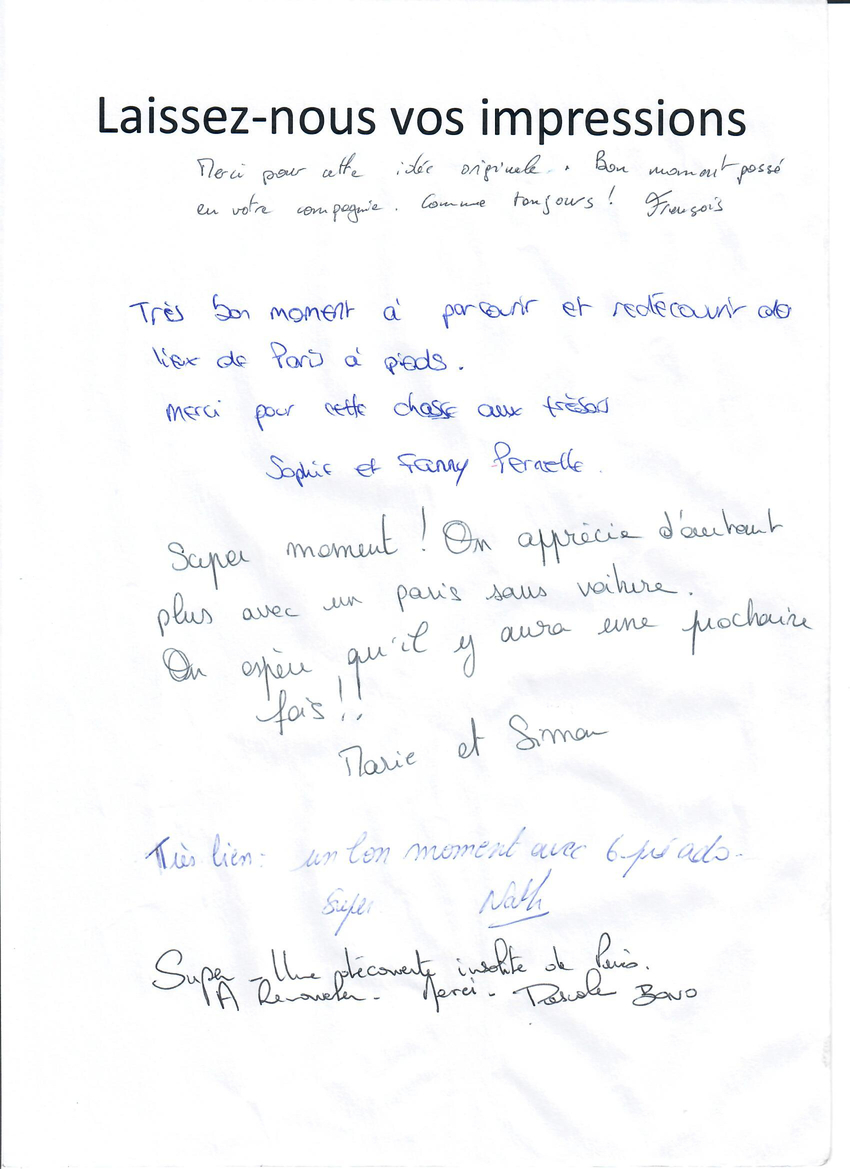 Laissez-nous vos impressions
Merci pour cette idée originale. Bon moment passé
en votre compagnie. Comme toujours ! François
Très bon moment à parcourir et redécouvrir de
lieux de Paris à pieds.
Merci pour cette chasse aux trésors
Sophie et Fanny Pernelle.
Super moment ! On apprécie d'autant
plus avec un paris sans voiture.
On espère qu'il y aura une prochaine
fois !!
Marie et Simon
Très bien : un bon moment avec 6 pré ados.
Super Nath
Super - Une découverte insolite de Paris.
A Renouveler - Merci - Pascale Bono